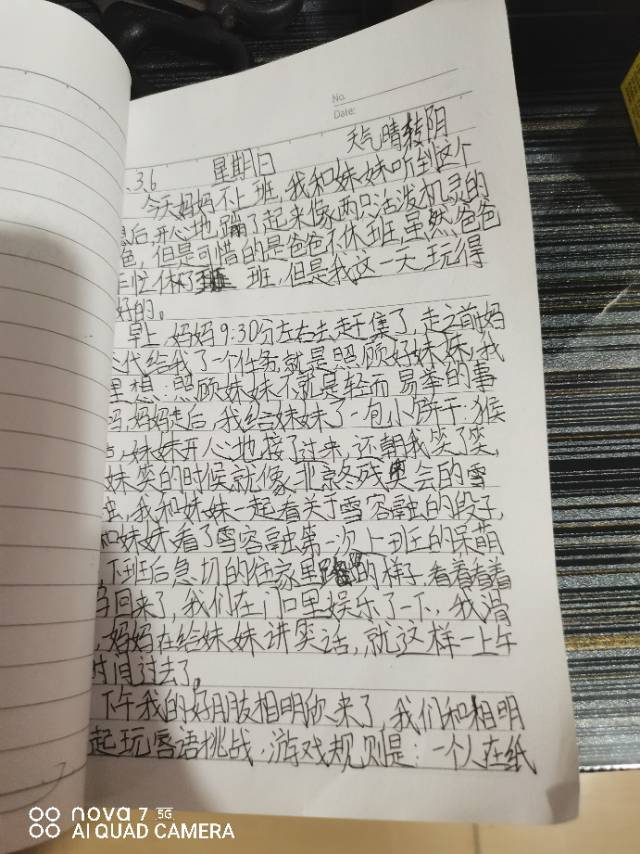 No.
Date:
.3.6 星期日 天气晴转阴
今天妈妈不上班,我和妹妹听到这个
息后,开心地蹦了起来像两只活泼机灵的
兔,但是可惜的是爸爸不休班,虽然爸爸
忙休了班,但是我这一天玩得
好的。
早上,妈妈9:30分左右去赶集了,走之前妈
交代给我了一个任务,就是照顾好妹妹,我
里想:照顾妹妹不就是轻而易举的事
吗,妈妈走后,我给妹妹了一包小饼干:猴
,妹妹开心地接了过来,还朝我笑了笑,
妹笑的时候就像北京冬残奥会的雪
,我和妹妹一起看关于雪容融的段子,
和妹妹看了雪容融第一次上班的呆萌
,下班后急切的往家里的样子,看着看着
回来了,我们在门口里娱乐了一下,我滑
,妈妈在给妹妹讲笑话,就这样一上午
时间过去了。
下午我的好朋友相明欣来了,我们和相明
起玩客语挑战,游戏规则是:一个人在纸
nova 7 5G
AI QUAD CAMERA